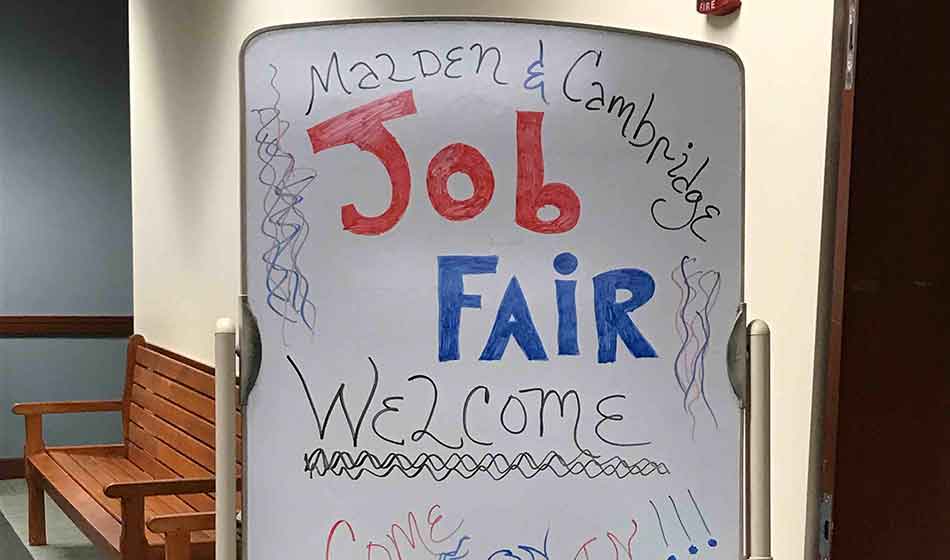 FIRE
MaLDEN & Cambridge
Job
FAiR
WELCOME
COME ON IN!!!